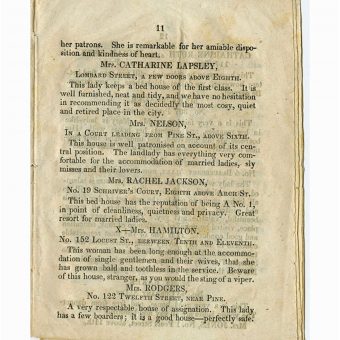 11
her patrons. She is remarkable for her amiable dispo-
sition and kindness of heart.
Mrs. CATHARINE LAPSLEY,
Lombard Street, a few doors above Eighth.
This lady keeps a bed house of the first class. It is
well furnished, neat and tidy, and we have no hesitation
in recommending it as decidedly the most cosy, quiet
and retired place in the city.
Mrs. NELSON,
In a Court leading from Pine St., above Sixth.
This house is well patronised on account of its cen-
tral position. The landlady has everything very com-
fortable for the accommodation of married ladies, sly
misses and their lovers.
Mrs. RACHEL JACKSON,
No. 19 Schriver's Court, Eighth above Arch St.
This bed house has the reputation of being A No. 1,
in point of cleanliness, quietness and privacy. Great
resort for married ladies.
X—Mrs. HAMILTON,
No. 152 Locust St., between Tenth and Eleventh.
This woman has been long enough at the accommo-
dation of single gentlemen and their wives, that she
has grown bald and toothless in the service. Beware
of this house, stranger, as you would the sting of a viper.
Mrs. RODGERS,
No. 122 Twelfth Street, near Pine.
A very respectable house of assignation. This lady
has a few boarders; It is a good house—perfectly safe.